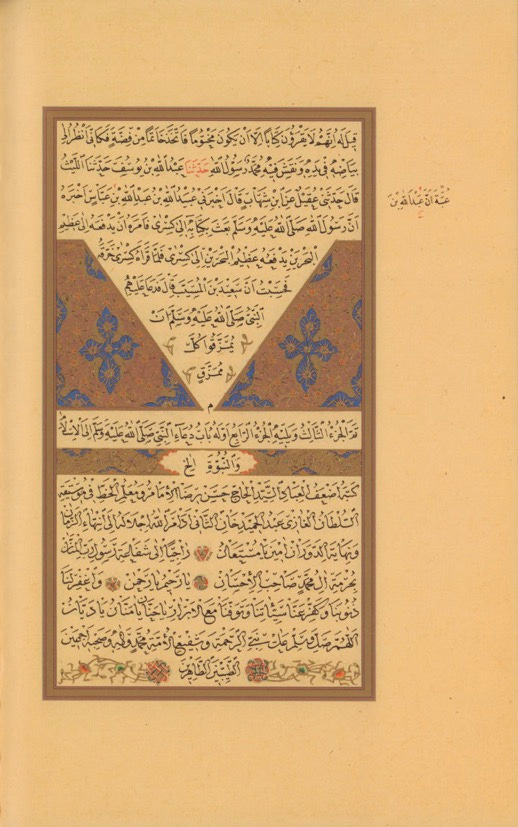 قيل له انهم لا يقرؤن كتابا الا ان يكون مختوما فاتخذ خاتما من فضة فكأنى انظر الى
بياضه فى يده ونقش فيه محمد رسول الله حدثنا عبد الله بن يوسف حدثنا الليث
قال حدثنى عقيل عن ابن شهاب قال اخبرنى عبيد الله بن عبد الله بن عباس اخبره
ان رسول الله صلى الله عليه وسلم بعث بكتابه الى كسرى فامره ان يدفعه الى عظيم
البحرين يدفعه عظيم البحرين الى كسرى فلما قرأه كسرى خرقه
فحسبت ان سعيد بن المسيب قال فدعا عليهم
النبى صلى الله عليه وسلم ان
يمزقوا كل
ممزق
م
عتبة ان عبد الله بن
تم الجزء الثالث ويليه الجزء الرابع اوله باب دعاء النبى صلى الله عليه وسلم الى الاسلام
والنبوة الخ
كتبه اضعف العباد السيد الحاج حسين رضا معلم الخط فى
السلطان الغازى عبد الحميد خان الثانى ادام الله اجلاله الى انتهاء الزمان
ونهاية الدوران امين يا مستعان راجيا الى شفاعة رسول رب المنان
بحرمة ال محمد صاحب الاحسان يا رحيم يا رحمن واغفر لنا
ذنوبنا وكفر عنا سيئاتنا وتوفنا مع الابرار يا حنان يا منان يا ديان
اللهم صل وسلم على نبى الرحمة وشفيع الامة محمد واله وصحبه اجمعين
الطيبين الطاهرين